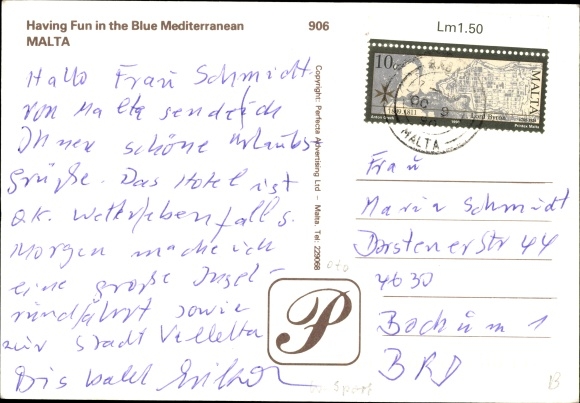 Having Fun in the Blue Mediterranean
MALTA
906
Lm1.50
Hallo Frau Schmidt.
von Malta sende ich
Ihnen schöne Urlaubs
grüße. Das Hotel ist
o.k. Wetter ebenfalls.
Morgen mache ich
eine große Insel-
rundfahrt sowie
zur Stadt Valletta
Bis bald
Copyright: Perfecta Advertising Ltd – Malta. Tel: 229068
10c
MALTA
Lord Byron
MALTA
Frau
Maria Schmidt
Dorstenerstr 44
4630
Bochum 1
BRD
P
B